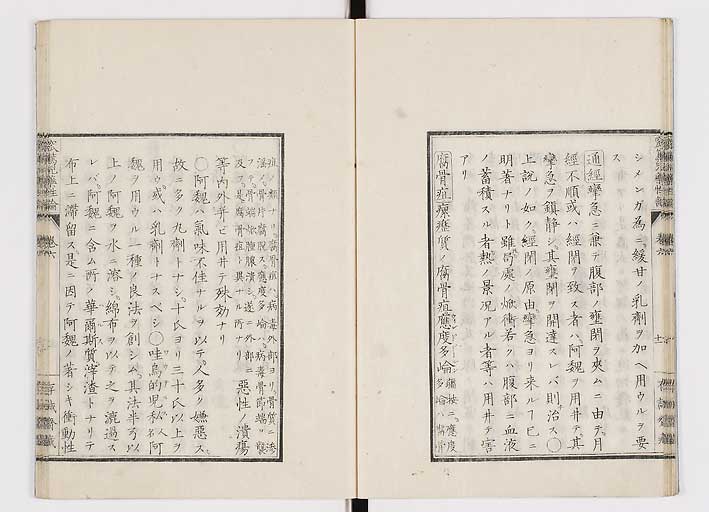 シメンガ為ニ緩甘ノ乳劑ヲ加ヘ用ウルヲ要
ス
通經 攣急ニ兼テ腹部ノ壅閉ヲ夾ムニ由テ月
經不順或ハ經閉ヲ致ス者ハ阿魏ヲ用井テ其
攣急ヲ鎮静シ其壅閉ヲ開達スレバ則治ス○
上説ノ如ク經閉ノ原由攣急ヨリ來ルヿ已ニ
明著ナリト雖局處ノ焮衝若クハ腹部ニ血液
ノ蓄積スル者熱ノ景況アル者等ハ用井テ害
アリ
腐骨疽 瘰癧質ノ腐骨疽應度多崘
疽ノ腐骨疽ハ病毒外部ヨリ骨質ニ滲
及フ是腐骨疽ト異ナル所ナリ 惡性ノ潰瘍
等内外幷ビ用井テ殊効ナリ
○阿魏ハ氣味不佳ナルヲ以テ人多ク嫌惡ス
故ニ多ク丸劑トナシ十氏ヨリ三十氏以上ヲ
用ウ或ハ乳劑トナスベシ○哇烏的兒私人阿
魏ヲ用ウル一種ノ良法ヲ創シム其法半弓以
上ノ阿魏ヲ水ニ溶シ綿布ヲ以テ之ヲ漉過ス
レバ阿魏ニ含ム所ノ華爾斯質滓渣トナリテ
布上ニ滯留ス是ニ因テ阿魏ノ著シキ衝動性